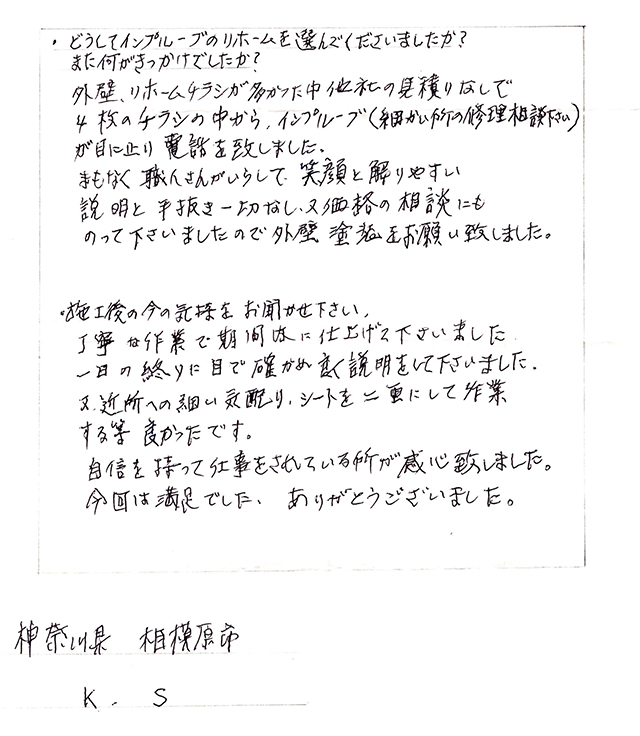 ・どうしてインプルーブのリホームを選んでくださいましたか?
また何がきっかけでしたか?
外壁、リホームチラシが多かった中他社の見積りなしで
4枚のチラシの中から、インプルーブ(細かい所の修理相談下さい)
が目に止り電話を致しました。
まもなく職人さんがいらして、笑顔と解りやすい
説明と手抜き一切なし、又価格の相談にも
のって下さいましたので外壁塗装をお願い致しました。
・施工後の今の気持をお聞かせ下さい。
丁寧な作業で期間内に仕上げて下さいました
一日の終りに目で確かめ良く説明をして下さいました。
又、近所への細い気配り、シートを二重にして作業
する等良かったです。
自信を持って仕事をされている所が感心致しました。
今回は満足でした、ありがとうございました。
神奈川県 相模原市
K. S